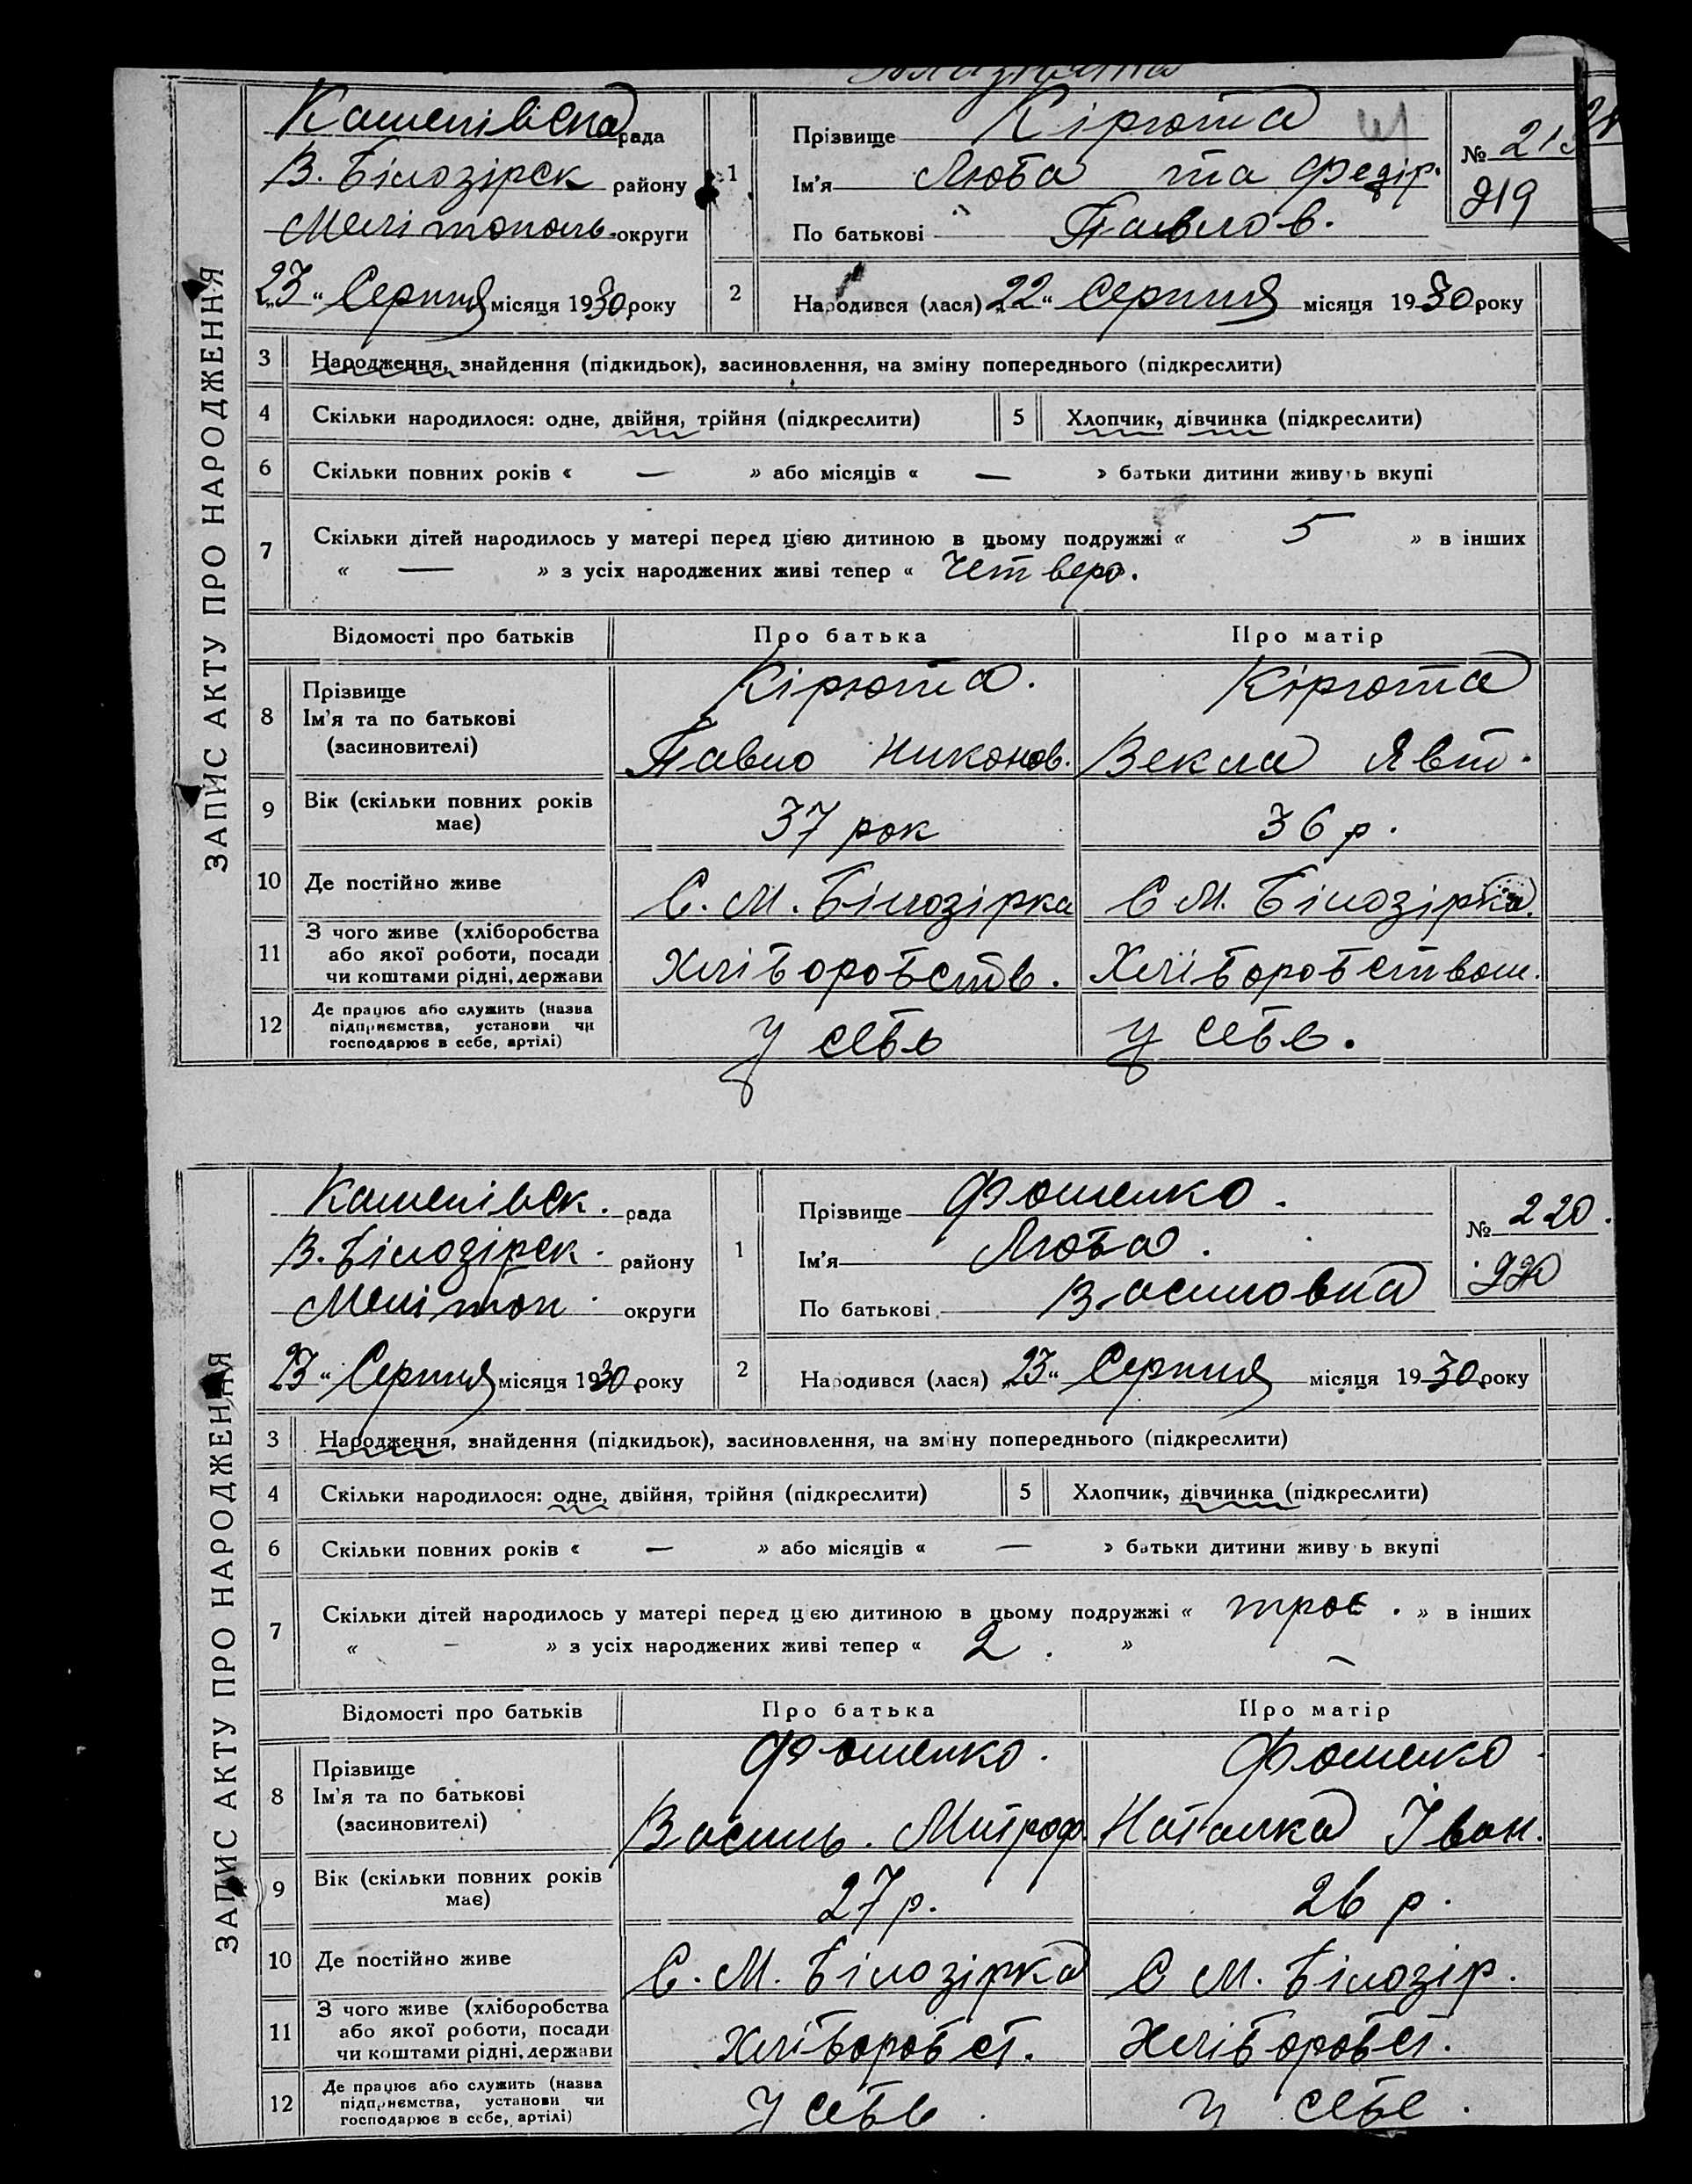 ЗАПИС АКТУ ПРО НАРОДЖЕННЯ
Каменівська рада
В. Білозірск району
Мелітополь округи
„23" Серпня місяця 1930 року
1 Прізвище Кірюта
Ім'я Люба та Федір.
По батькові Павлов.
№ 218
219
2 Народився (лася) „22" Серпня місяця 1930 року
3 Народження, знайдення (підкидьок), засиновлення, на зміну попереднього (підкреслити)
4 Скільки народилося: одне, двійня, трійня (підкреслити) 5 Хлопчик, дівчинка (підкреслити)
6 Скільки повних років « — » або місяців « — » батьки дитини живуть вкупі
7 Скільки дітей народилось у матері перед цією дитиною в цьому подружжі « 5 » в інших
« — » з усіх народжених живі тепер « Четверо.
Відомості про батьків Про батька Про матір
8 Прізвище Кірюта. Кірюта
Ім'я та по батькові
(засиновителі) Павло Никонов. Векла Явт.
9 Вік (скільки повних років має) 37 рок 36 р.
10 Де постійно живе С. М. Білозірка С М. Білозірка
11 З чого живе (хліборобства
або якої роботи, посади
чи коштами рідні, держави Хліборобств. Хліборобством.
12 Де працює або служить (назва
підприємства, установи чи
господарює в себе, артілі) У себе У себе.
ЗАПИС АКТУ ПРО НАРОДЖЕННЯ
Каменівск. рада
В. Білозірск. району
Мелітоп. округи
„23" Серпня місяця 1930 року
1 Прізвище Фоменко.
Ім'я Люба.
По батькові Василовна
№ 220.
220
2 Народився (лася) „23" Серпня місяця 1930 року
3 Народження, знайдення (підкидьок), засиновлення, на зміну попереднього (підкреслити)
4 Скільки народилося: одне, двійня, трійня (підкреслити) 5 Хлопчик, дівчинка (підкреслити)
6 Скільки повних років « — » або місяців « — » батьки дитини живуть вкупі
7 Скільки дітей народилось у матері перед цією дитиною в цьому подружжі « троє. » в інших
« — » з усіх народжених живі тепер « 2. »
Відомості про батьків Про батька Про матір
8 Прізвище Фоменко. Фоменко.
Ім'я та по батькові
(засиновителі) Василь. Митроф. Наталка Іван.
9 Вік (скільки повних років має) 27 р. 26 р.
10 Де постійно живе С. М. Білозірка С М. Білозір.
11 З чого живе (хліборобства
або якої роботи, посади
чи коштами рідні, держави Хліборобст. Хліборобст.
12 Де працює або служить (назва
підприємства, установи чи
господарює в себе, артілі) У себе. У себе.